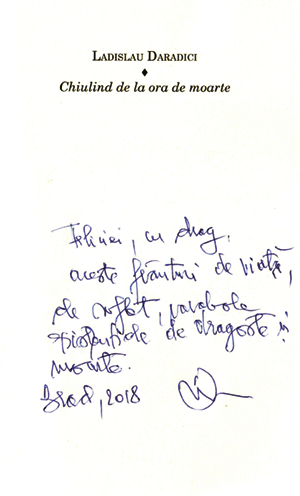 LADISLAU DARADICI
♦
Chiulind de la ora de moarte
, cu drag,
aceste frânturi de viață,
de suflet, parabole
de dragoste și
moarte.
Brad, 2018